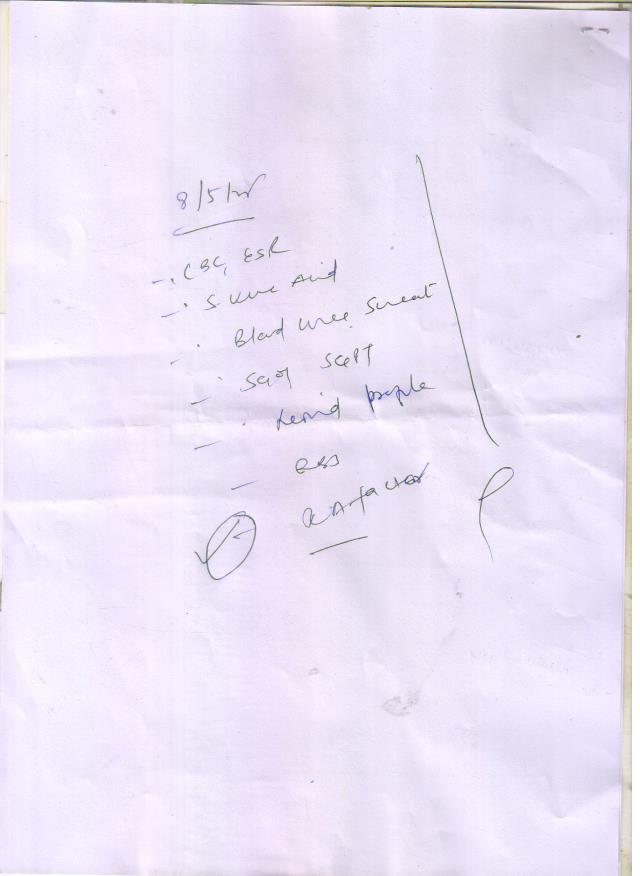 8/5/
CBC, ESR
S. Uric Acid
Blood Urea
SGOT SGPT
Lipid profile
RBS
RA factor